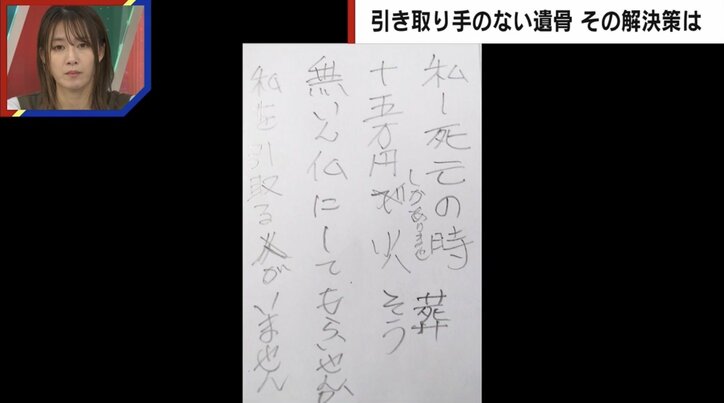 引き取り手のない遺骨 その解決策は
私し死亡の時 葬
十五万円 火そう
しかありませ
無いん仏にしてもらいせんか
私を引取る人がいません